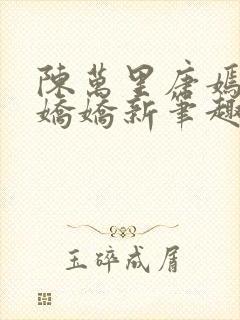 陳萬里唐嫣
嬌嬌新筆趣
玉碎成屑